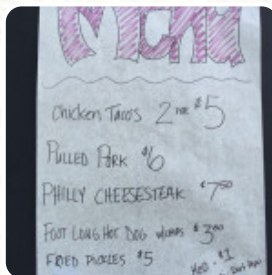 Menu
Chicken Tacos 2 for $5
Pulled Pork $6
Philly Cheesesteak $7.00
Foot Long Hot Dog $3.00
Fried Pickles $5
$1